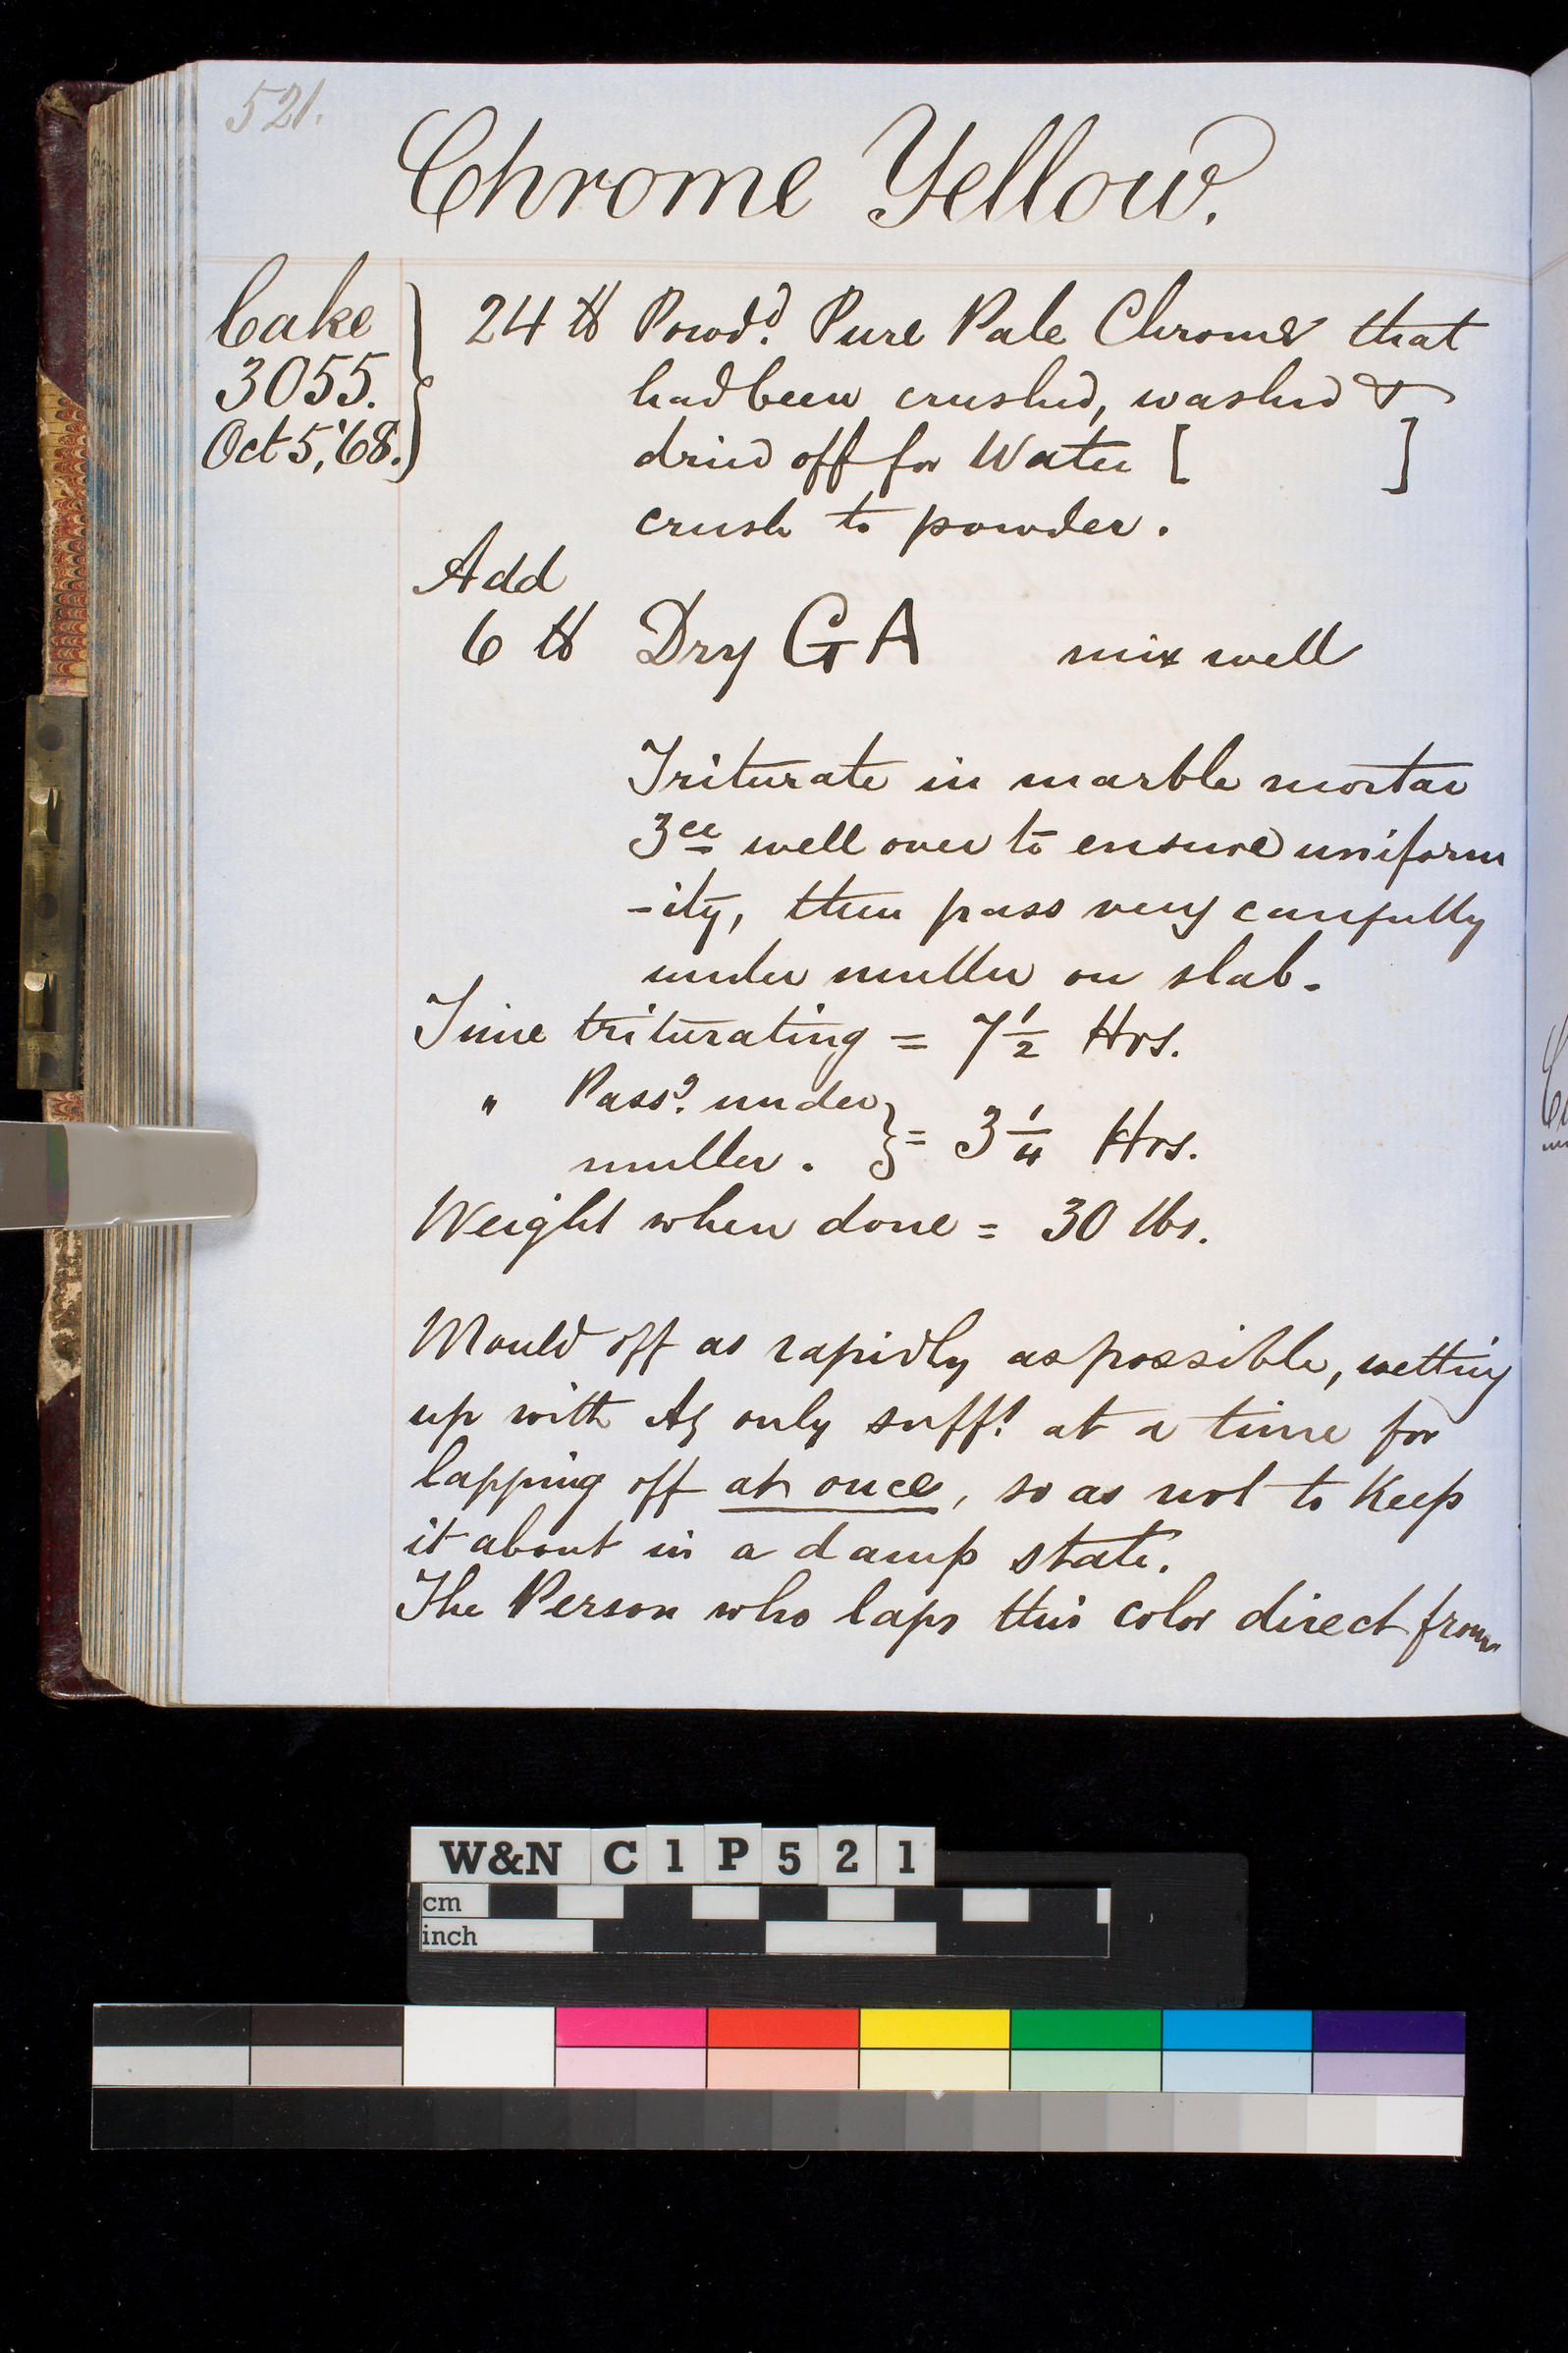 521.
Chrome Yellow.
Cake
3055.
Oct 5, '68.
24 lb Powd.d Pure Pale Chrome that
had been crushed, washed &
dried off for Water [ ]
crush to powder.
Add
6 lb Dry GA mix well
Triturate in marble mortar
3ce well over to ensure uniform
-ity, then pass very carefully
under muller on slab.
Time triturating = 7 1/2 Hrs.
" Pass.g under
muller. } = 3 1/4 Hrs.
Weight when done = 30 lbs.
Mould off as rapidly as possible, wetting
up with Aq only suff.t at a time for
lapping off at once, so as not to Keep
it about in a damp state.
The Person who laps this color direct from
W&N C1P521
cm
inch